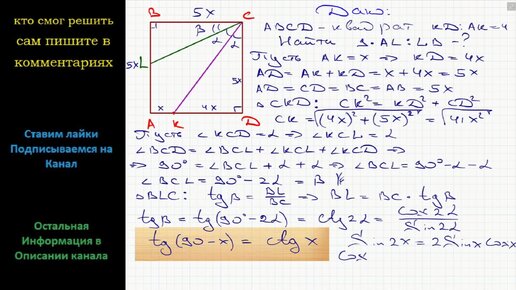 кто смог решить
сам пишите в
комментариях
Ставим лайки
Подписываемся на
Канал
Остальная
Информация в
Описании канала
B 5x C
β α α
L
5x 5x
x 4x
A K D
Дано:
ABCD - квадрат KD:AK=4
Найти 1. AL:LB - ?
Пусть AK = x ⇒ KD = 4x
AD = AK + KD = x + 4x = 5x
AD = CD = BC = AB = 5x
△CKD: CK² = KD² + CD²
CK = √((4x)² + (5x)²) = √(41x²)
Пусть ∠KCD = α ⇒ ∠KCL = α
∠BCD = ∠BCL + ∠KCL + ∠KCD ⇒
⇒ 90° = ∠BCL + α + α ⇒ ∠BCL = 90° - α - α
∠BCL = 90° - 2α = β
△BLC: tgβ = BL/BC ⇒ BL = BC · tgβ
tgβ = tg(90° - 2α) = ctg 2α = Cos 2α / Sin 2α
tg(90 - x) = ctg x
Sin 2x = 2 Sin x Cos x
Cos